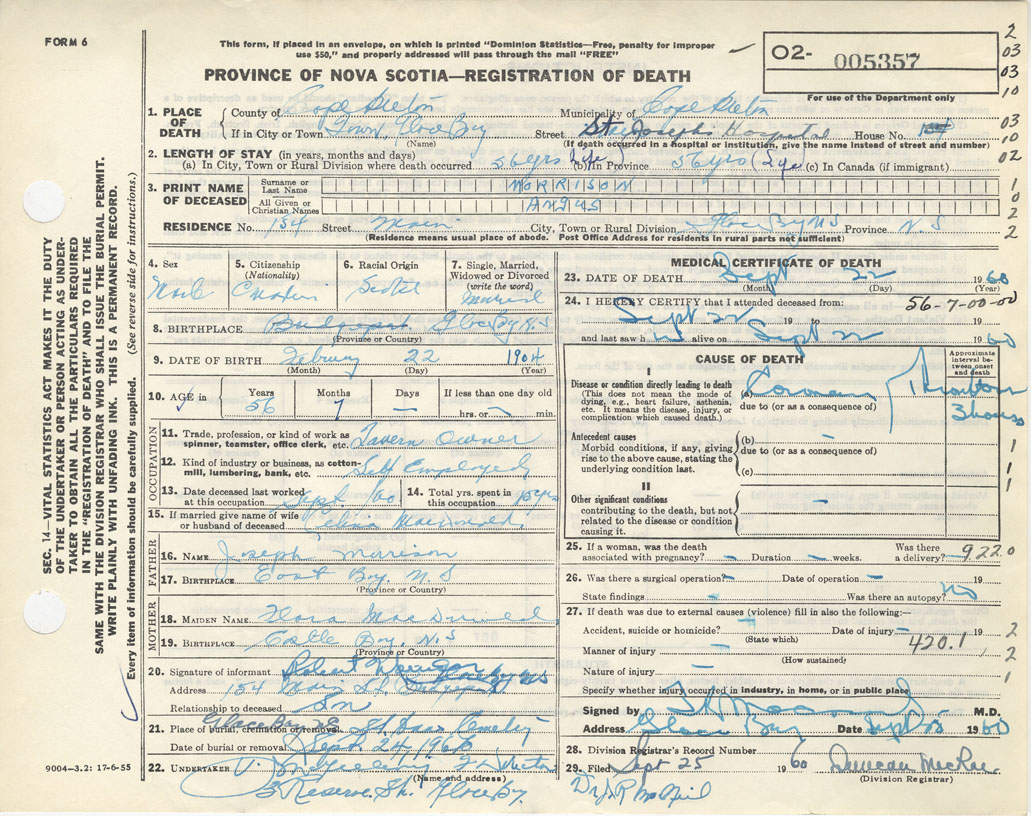 FORM 6
This form, if placed in an envelope, on which is printed "Dominion Statistics—Free, penalty for improper
use $50," and properly addressed will pass through the mail "FREE"
PROVINCE OF NOVA SCOTIA—REGISTRATION OF DEATH
02- 005357
For use of the Department only
2
03
03
10
03
10
02
1
0
2
2
SEC. 14—VITAL STATISTICS ACT MAKES IT THE DUTY
OF THE UNDERTAKER OR PERSON ACTING AS UNDER-
TAKER TO OBTAIN ALL THE PARTICULARS REQUIRED
IN THE "REGISTRATION OF DEATH" AND TO FILE THE
SAME WITH THE DIVISION REGISTRAR WHO SHALL ISSUE THE BURIAL PERMIT.
WRITE PLAINLY WITH UNFADING INK. THIS IS A PERMANENT RECORD.
Every item of information should be carefully supplied. (See reverse side for instructions.)
1. PLACE OF DEATH
County of Cape Breton Municipality of Cape Breton
If in City or Town Town, Glace Bay Street St Josephs Hospital House No.
(Name) (If death occurred in a hospital or institution, give the name instead of street and number)
2. LENGTH OF STAY (in years, months and days)
(a) In City, Town or Rural Division where death occurred 56 yrs (life) (b) In Province 56 yrs (life) (c) In Canada (if immigrant)
3. PRINT NAME OF DECEASED
Surname or Last Name MORRISON
All Given or Christian Names ANGUS
RESIDENCE No. 154 Street Main City, Town or Rural Division Glace Bay NS Province N.S
(Residence means usual place of abode. Post Office Address for residents in rural parts not sufficient)
4. Sex Male
5. Citizenship (Nationality)
6. Racial Origin Scotch
7. Single, Married, Widowed or Divorced (write the word) Married
8. BIRTHPLACE Bridgeport Glace Bay N.S
(Province or Country)
9. DATE OF BIRTH February 22 1904
(Month) (Day) (Year)
10. AGE in Years 56 Months 7 Days — If less than one day hrs. or — min.
OCCUPATION
11. Trade, profession, or kind of work as spinner, teamster, office clerk, etc. Tavern Owner
12. Kind of industry or business, as cotton-mill, lumbering, bank, etc. Self Employed
13. Date deceased last worked at this occupation Sept 60
14. Total yrs. spent in this occupation
15. If married give name of wife or husband of deceased Celina MacDonald
FATHER
16. NAME Joseph Morrison
17. BIRTHPLACE East Bay, N.S
(Province or Country)
MOTHER
18. MAIDEN NAME Flora MacDonald
19. BIRTHPLACE Bay, N.S
(Province or Country)
20. Signature of informant Robert Morrison
Address 154 Main St. Bridgeport
Relationship to deceased Son
21. Place of burial, cremation or removal Glace Bay NS St. Cemetery
Date of burial or removal Sept. 24, 1960
22. UNDERTAKER
(Name and address)
Reserve St. Glace Bay.
9004—3.2: 17-6-55
MEDICAL CERTIFICATE OF DEATH
23. DATE OF DEATH Sept 22 1960
(Month) (Day) (Year)
24. I HEREBY CERTIFY that I attended deceased from: 56-7-00-00
Sept 22 19 to
and last saw h im alive on Sept 22 1960
CAUSE OF DEATH
Approximate interval between onset and death
I
Disease or condition directly leading to death
(This does not mean the mode of dying, e.g., heart failure, asthenia, etc. It means the disease, injury, or complication which caused death.)
(a) Coronary Thrombosis 3 hours
due to (or as a consequence of)
Antecedent causes
Morbid conditions, if any, giving rise to the above cause, stating the underlying condition last.
(b) —
due to (or as a consequence of)
(c)
1
1
1
II
Other significant conditions
contributing to the death, but not related to the disease or condition causing it.
—
25. If a woman, was the death associated with pregnancy? — Duration — weeks. Was there a delivery? 9220
26. Was there a surgical operation? — Date of operation — 19
State findings — Was there an autopsy? No
27. If death was due to external causes (violence) fill in also the following:—
Accident, suicide or homicide? Date of injury — 19 2
(State which)
Manner of injury — 420.1 2
(How sustained)
Nature of injury — 1
Specify whether injury occurred in industry, in home, or in public place
Signed by M.D.
Address Glace Bay Date Sept 25 1960
28. Division Registrar's Record Number
29. Filed Sept 25 1960 Duncan McRae
(Division Registrar)
Dr J. R McNeil